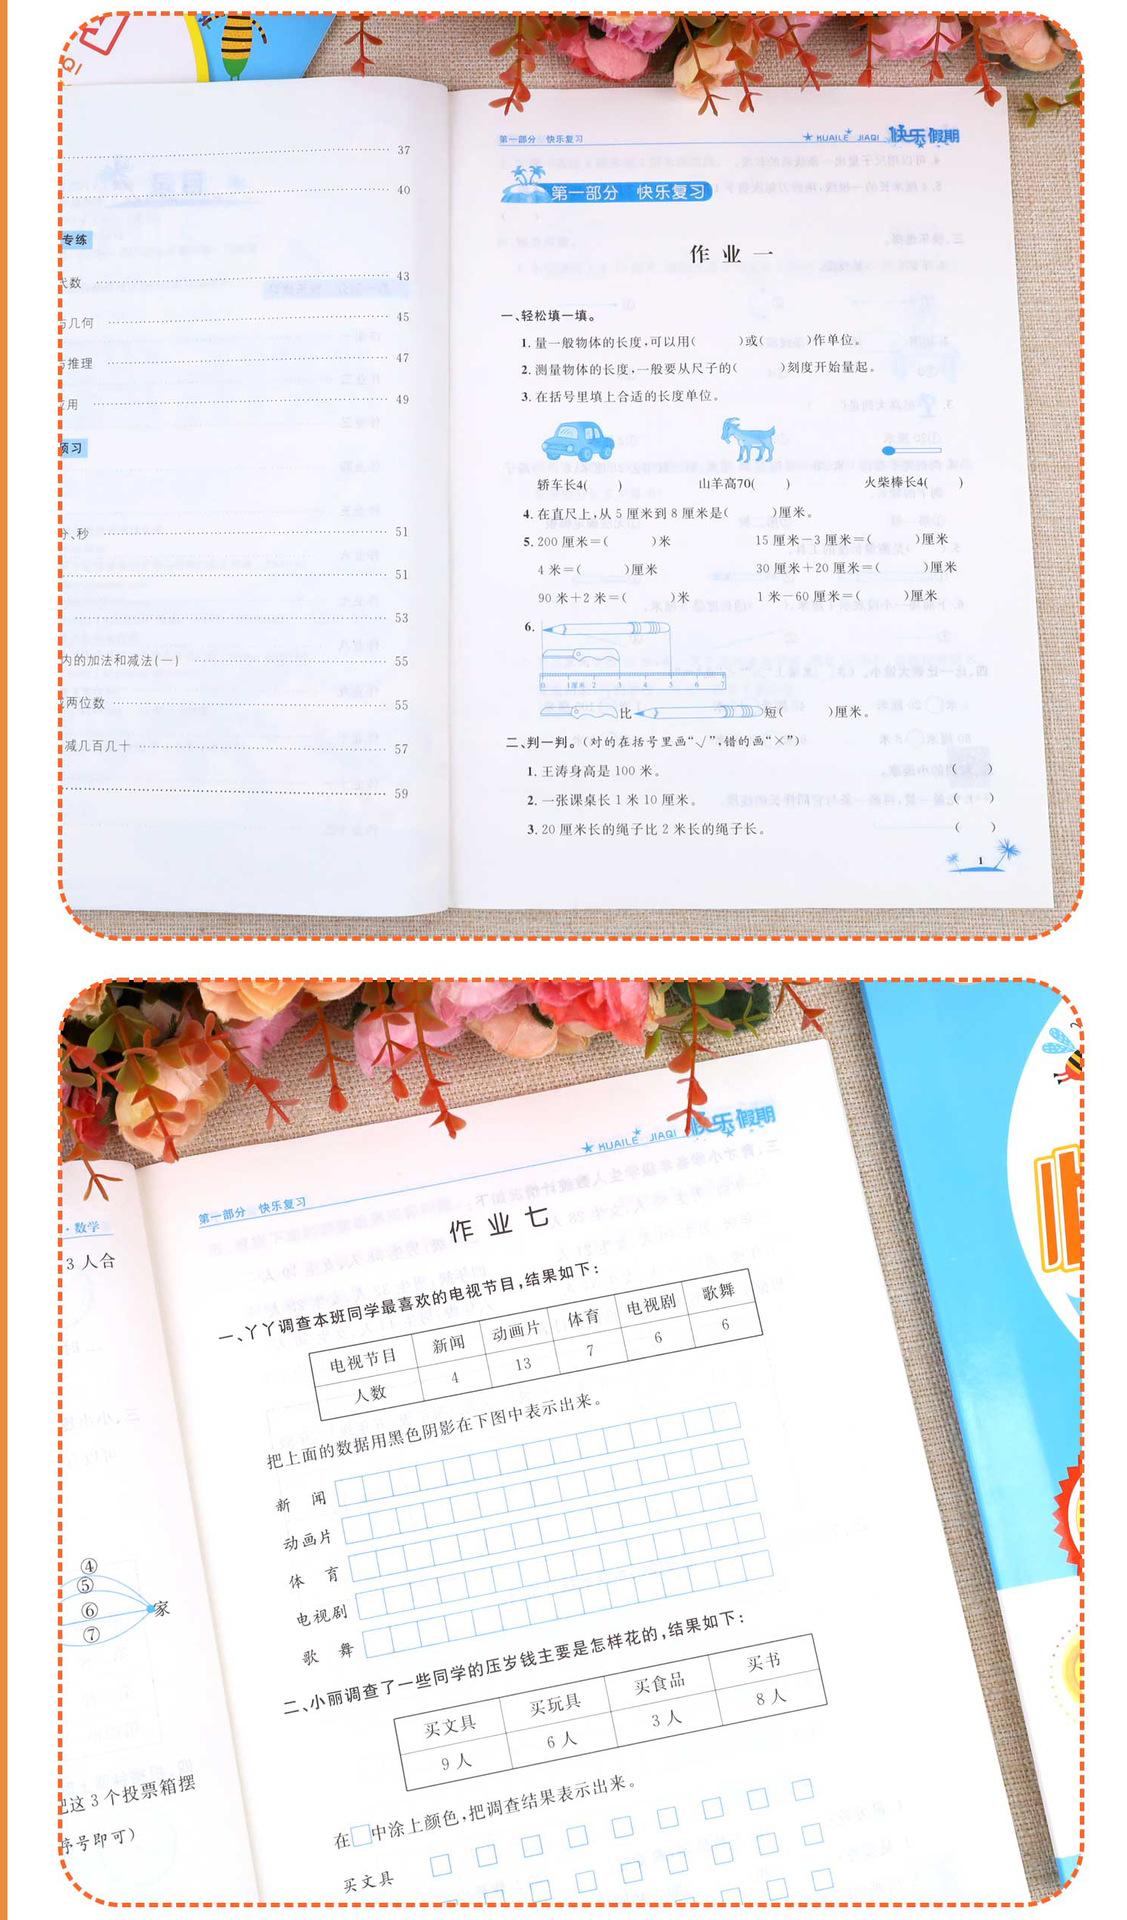 QI
37
40
专练
43
与几何
45
与推理
47
49
预习
分、秒
51
51
53
内的加法和减法(一)
55
两位数
55
减几百几十
57
59
第一部分 快乐复习
KUAILE JIAQI 快乐假期
第一部分 快乐复习
作 业 一
一、轻松填一填。
1. 量一般物体的长度,可以用( )或( )作单位。
2. 测量物体的长度,一般要从尺子的( )刻度开始量起。
3. 在括号里填上合适的长度单位。
轿车长4( ) 山羊高70( ) 火柴棒长4( )
4. 在直尺上,从 5 厘米到 8 厘米是( )厘米。
5. 200 厘米=( )米 15 厘米-3 厘米=( )厘米
4 米=( )厘米 30 厘米+20 厘米=( )厘米
90 米+2 米=( )米 1 米-60 厘米=( )厘米
6.
0 1厘米 2 3 4 5 6 7
比 短( )厘米。
二、判一判。(对的在括号里画“√”,错的画“×”)
1. 王涛身高是 100 米。 ( )
2. 一张课桌长 1 米 10 厘米。 ( )
3. 20 厘米长的绳子比 2 米长的绳子长。 ( )
1
·数学
3 人合
④
⑤
⑥
⑦
家
把这 3 个投票箱摆
序号即可)
第一部分 快乐复习
KUAILE JIAQI 快乐假期
作 业 七
一、丫丫调查本班同学最喜欢的电视节目,结果如下:
电视节目 新闻 动画片 体育 电视剧 歌舞
人数 4 13 7 6 6
把上面的数据用黑色阴影在下图中表示出来。
新 闻
动画片
体 育
电视剧
歌 舞
二、小丽调查了一些同学的压岁钱主要是怎样花的,结果如下:
买文具 买玩具 买食品 买书
9 人 6 人 3 人 8 人
在□中涂上颜色,把调查结果表示出来。
买文具